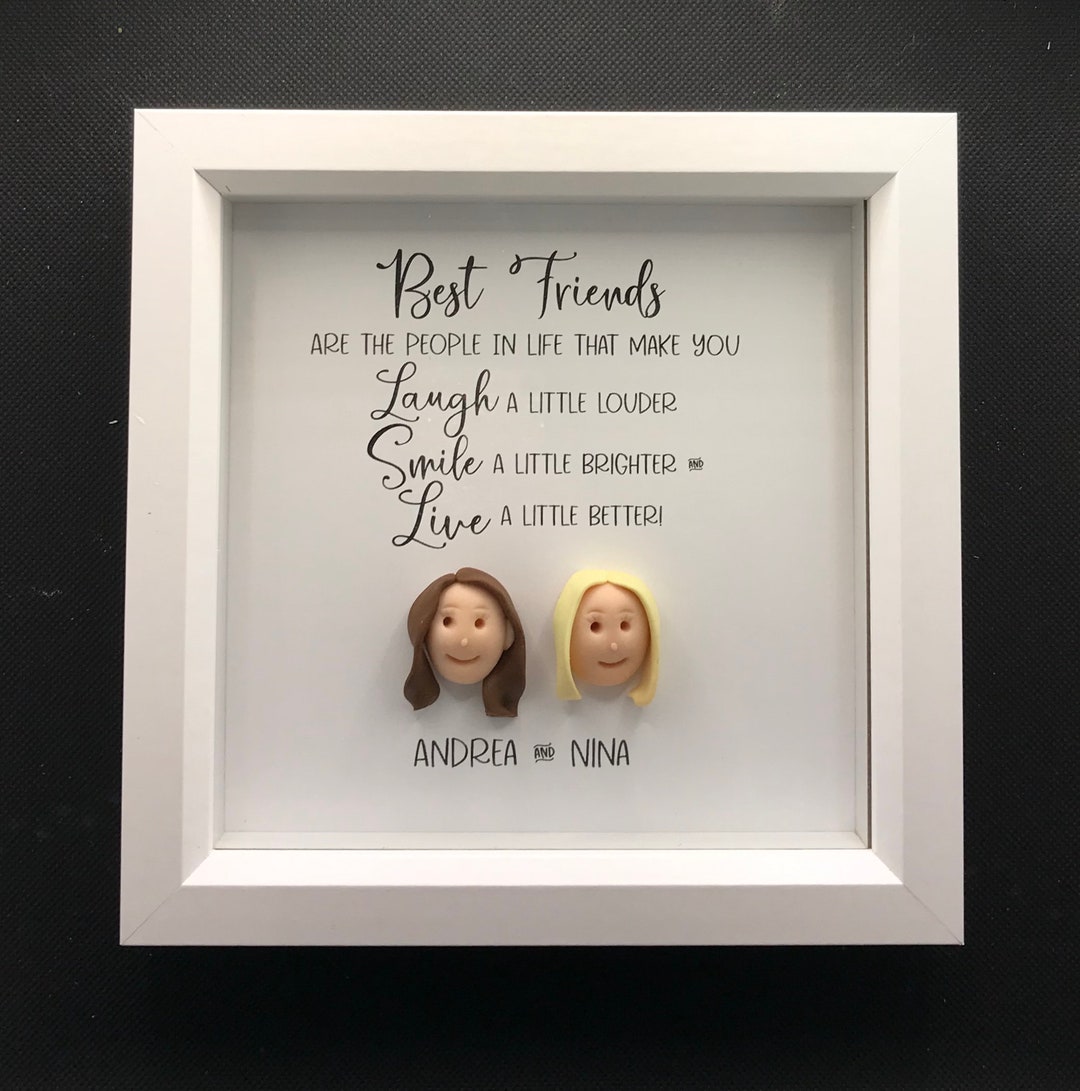 Best Friends
ARE THE PEOPLE IN LIFE THAT MAKE YOU
Laugh A LITTLE LOUDER
Smile A LITTLE BRIGHTER AND
Live A LITTLE BETTER!
ANDREA AND NINA